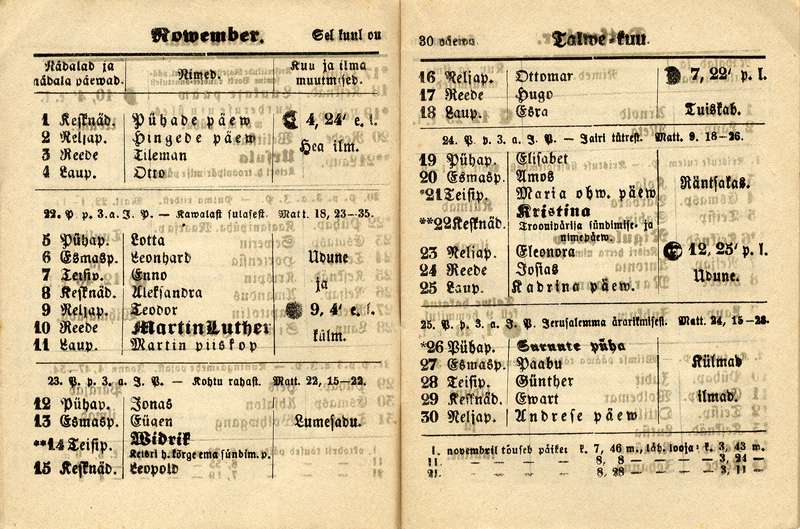 Nowember. Sel kuul on
Nädalad ja nädala päewad. Nimed. Kuu ja ilma muutmised.
1 Keſknäd. Pühade päew 4, 24' e. l.
2 Neljap. Hingede päew
3 Reede Tileman Hea ilm.
4 Laup. Otto
22. P. p. 3. a. J. P. — Kawalaſt ſulaſeſt. Matt. 18, 23—35.
5 Pühap. Lotta
6 Esmasp. Leonhard Udune
7 Teiſip. Enno ja
8 Keſknäd. Alekſandra
9 Neljap. Teodor 9, 4' e. l.
10 Reede Martin Luther külm.
11 Laup. Martin piiskop
23. P. p. 3. a. J. P. — Kohtu rahaſt. Matt. 22, 15—22.
12 Pühap. Jonas
13 Esmasp. Eügen Lumeſadu.
**14 Teiſip. Widrik
Keiſri h. kõrge ema ſündim. p.
15 Keſknäd. Leopold
30 päewa Talwe-kuu.
16 Neljap. Ottomar 7, 22' p. l.
17 Reede Hugo
18 Laup. Esra Tuiskab.
24. P. p. 3. a. J. P. — Jairi tütreſt. Matt. 9. 18—26.
19 Pühap. Eliſabet
20 Esmasp. Amos Räntſakas.
*21 Teiſip. Maria ohw. päew
**22 Keſknäd. Kristina
Troonipärija ſündimiſe- ja
nimepäew.
23 Neljap. Eleonora 12, 25' p. l.
24 Reede Joſias Udune.
25 Laup. Kadrina päew.
25. P. p. 3. a. J. P. Jeruſalemma ärarikmiſeſt. Matt. 24, 15—28.
*26 Pühap. Surnute püha
27 Esmasp. Paabu Külmad
28 Teiſip. Günther
29 Keſknäd. Ewart ilmad.
30 Neljap. Andreſe päew
1. novembril tõuseb päike: k. 7, 46 m., läh. looja: k. 3, 43 m.
11. — — — 8, 8 — — — 3, 24 —
21. — — — 8, 28 — — — 3, 11 —